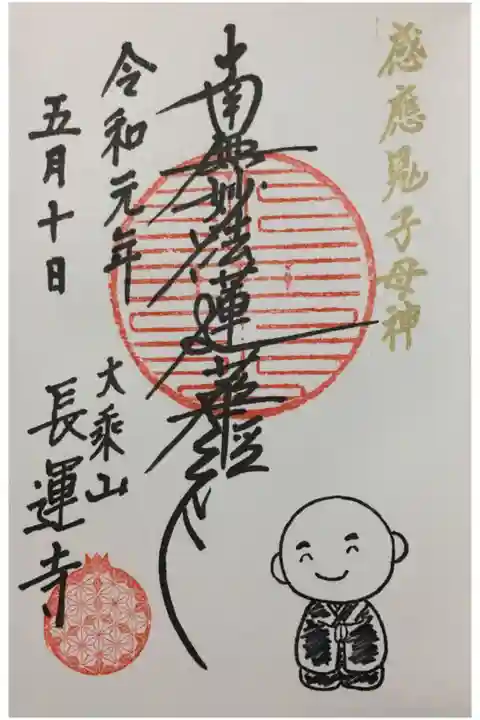 感應鬼子母神
南無妙法蓮華經
令和元年
五月十日
大乘山
長運寺